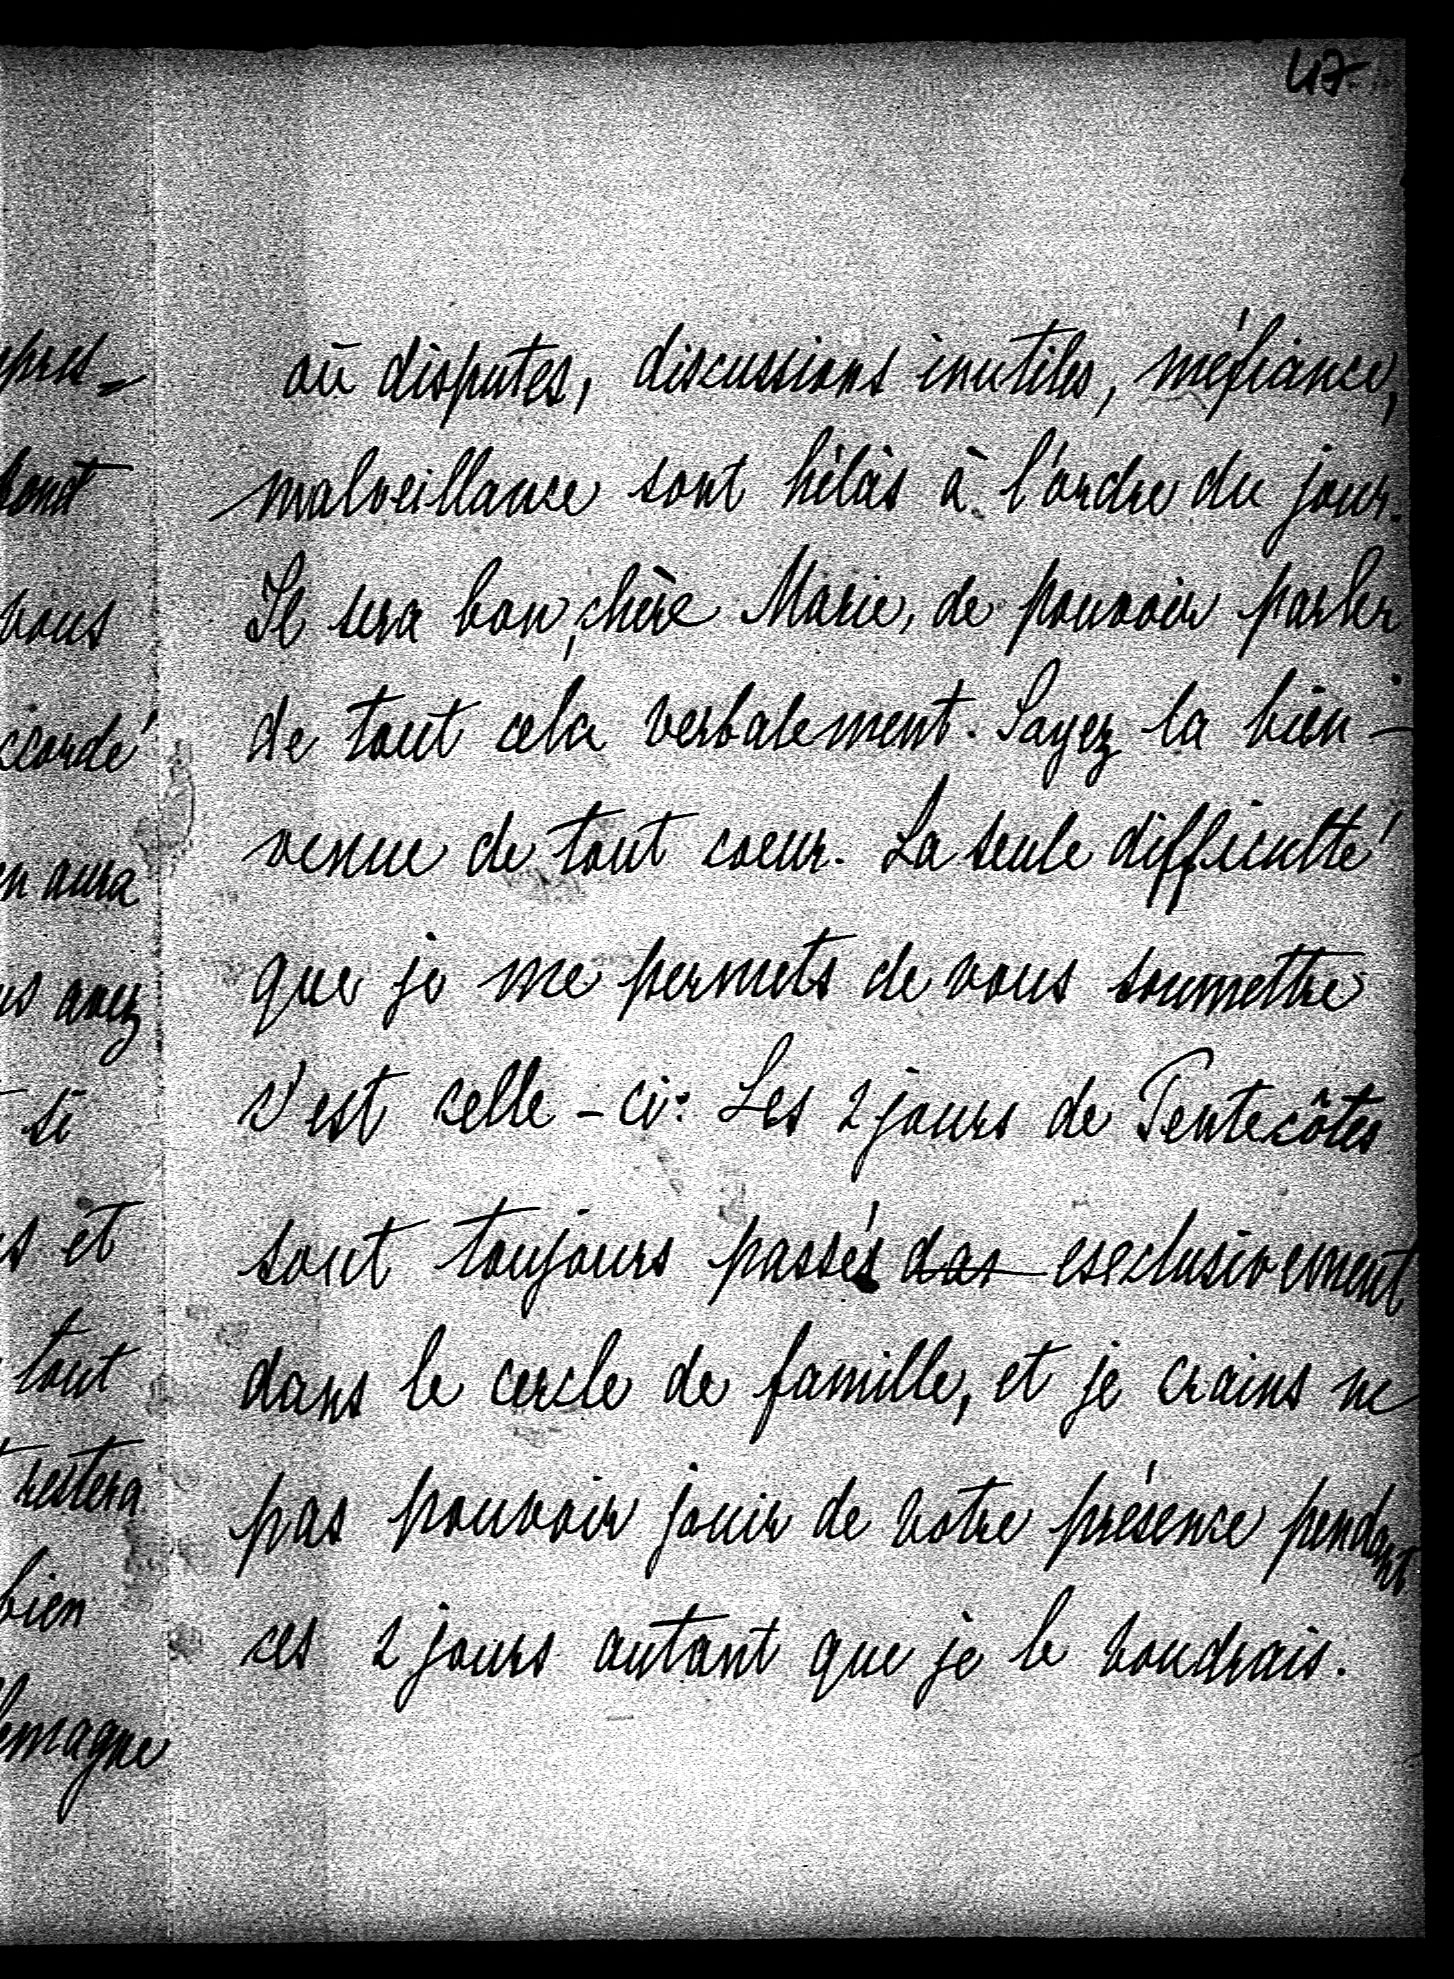 47.
où disputes, discussions inutiles, méfiance,
malveillance sont hélàs à l'ordre du jour.
Il sera bon, chère Marie, de pouvoir parler
de tout cela verbalement. Soyez la bien-
venue de tout coeur. La seule difficulté
que je me permets de vous soumettre
c'est celle-ci: Les 2 jours de Pentecôtes
sont toujours passés das exclusivement
dans le cercle de famille, et je crains ne
pas pouvoir jouir de votre présence pendant
ces 2 jours autant que je le voudrais.
vous
ccordé
en aura
us avez
si
s et
tout
restera
bien
lemagne